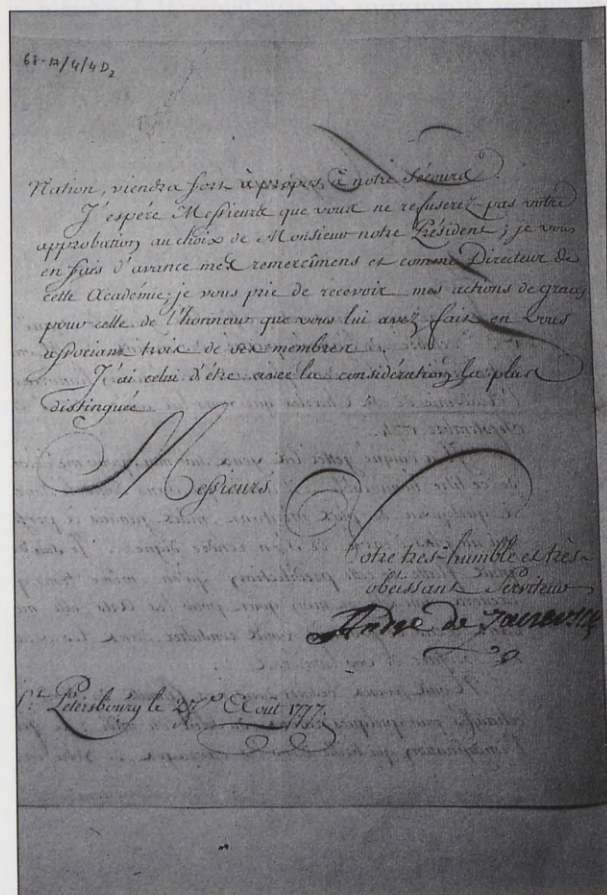 68-12/4/4 D2
Nation, viendra fort à propos, à notre Sécours.
J'espére Messieurs que vous ne refuserez pas votre
approbation au choix de Monsieur notre Président; je vous
en fais d'avance mes remercîmens et comme Directeur de
cette Académie; je vous prie de recevoir mes actions de graces
pour celle de l'honneur que vous lui avez fait en vous
associant trois de ses membres.
J'ai celui d'être avec la considération la plus
distinguée
Messieurs
Votre très-humble et très-
obéissant Serviteur
André de
St. Petersbourg le 27 Aout 1777.